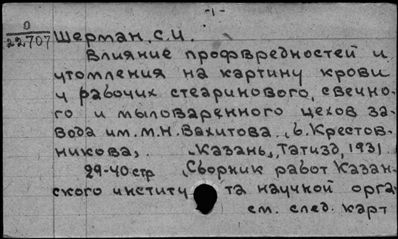 -1-
0
22707
Шерман, С.И.
Влияние профвредностей и
утомления на картину крови
у рабочих стеаринового, свечно-
го и мыловаренного цехов за-
вода им. М.Н. Вахитова. /б. Крестов-
никова/. Казань, Татизд, 1931.
29-40 стр /Сборник работ Казан-
ского институ та научной орга
см. след. карт